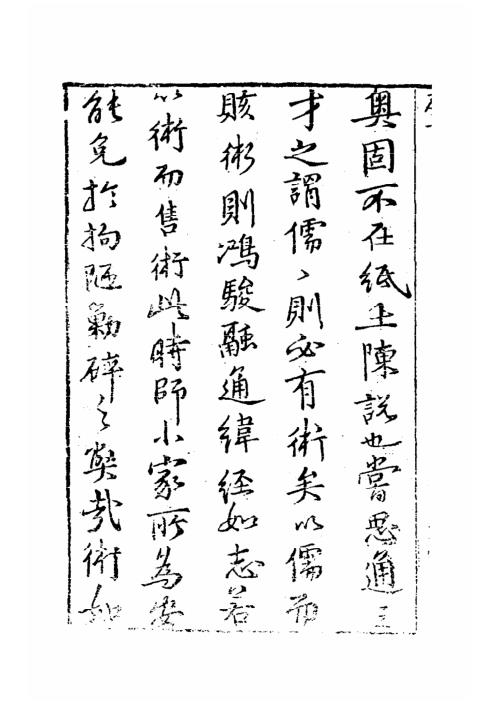 奧固不在紙上陳說也嘗思通三
才之謂儒〻則必有術矣以儒爲
賅術則鴻駿融通緯經如志若
以術而售術此時師小家所為安
能免於拘陋勦碎之弊哉術如